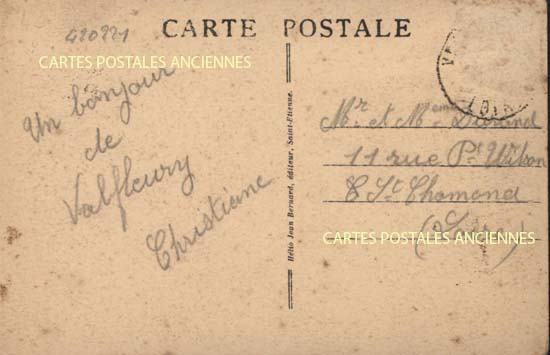 420221
CARTE POSTALE
CARTES POSTALES ANCIENNES
Un bonjour
de
Valfleury
Christiane
Hélio Jean Bernard, éditeur, Saint-Etienne.
LOIRE
Mr & Mme Durand
11 rue Pt Wilson
St Chamond
(Loire)
CARTES POSTALES ANCIENNES